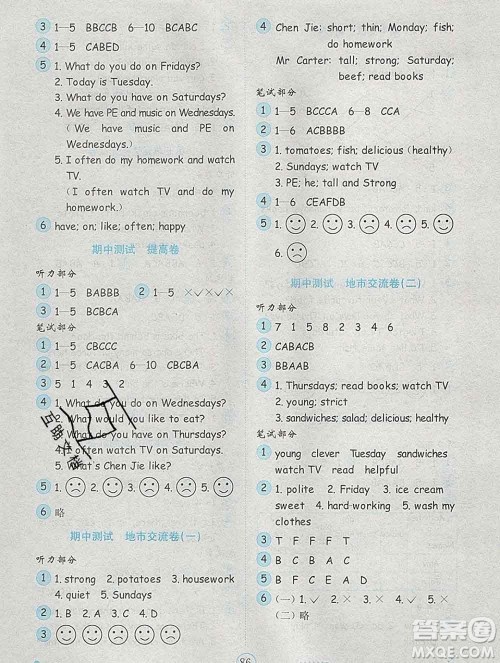 3 1—5 BBCCB 6—10 BBCCC
4 1—5 CABED
5 1. What do you do on Fridays?
2. Today is Tuesday.
3. What do you have on Saturdays?
4. We have PE and music on Wednesdays.
(We have music and PE on
Wednesdays.)
5. I often do my homework and watch
TV.
(I often watch TV and do my
homework.)
6 have; on; like; often; happy
期中测试 提高卷
听力部分
1 1—5 BABBB 2 1—5 ×✓×✓✓
3 1—5 BCBCA
笔试部分
1 1—5 CBCCC
2 1—5 CACBA 6—10 CBACA
3 5 1 4 3 2
4 1. What do you do on Wednesdays?
2. What would you like to eat?
3. What do you have on Thursdays?
4. I often watch TV on Saturdays.
5. What's Chen Jie like?
5 1. 2. 3. 4. 5.
6 略
期中测试 地市交流卷(一)
听力部分
1 1. strong 2. potatoes 3. housework
4. quiet 5. Sundays
2 1. B 2. A 3. D 4. C
3
4 Chen Jie: short; thin; Monday; fish;
do homework
Mr Carter: tall; strong; Saturday;
beef; read books
笔试部分
1 1—5 BCCCA 6—8 CCA
2 1—6 ACBBBB
3 1. tomatoes; fish; delicious (healthy)
2. Sundays; watch TV
3. PE; he; tall and Strong
4 1—6 CEAFDB
5 1. 2. 3. 4. 5.
6.
期中测试 地市交流卷(二)
听力部分
1 7 1 5 8 2 3 6 4
2 CABACB
3 BBAAB
4 1. Thursdays; read books; watch TV
2. young; strict
3. sandwiches; salad; delicious; healthy
笔试部分
1 young clever Tuesday sandwiches
watch TV read helpful
2 1. polite 2. Friday 3. ice cream
4. hard-working 5. sweet 6. wash
my clothes
3 T F F F T
4 B C B C A
5 B F C E A D
6 (一) 1. ✓ 2. × 3. × 4. ✓ 5. ×
(二) 略
86
互助文档
答案圈
MXQE.COM